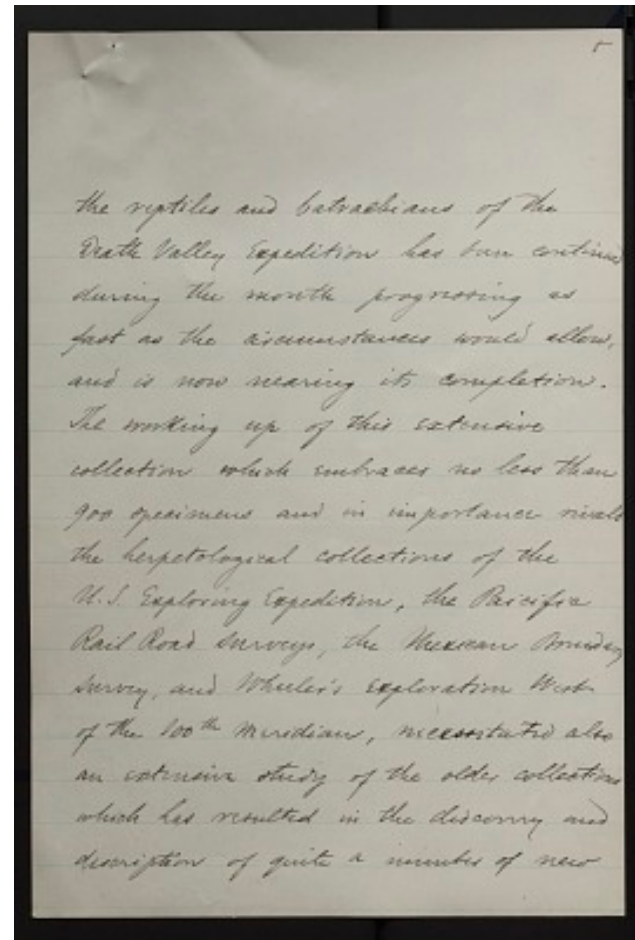 5
the reptiles and batrachians of the
Death Valley Expedition has been continued
during the month progressing as
fast as the circumstances would allow,
and is now nearing its completion.
The working up of this extensive
collection which embraces no less than
900 specimens and in importance rivals
the herpetological collections of the
U.S. Exploring Expedition, the Pacific
Rail Road Surveys, the Mexican Boundary
Survey, and Wheeler's exploration West
of the 100th Meridian, necessitated also
an extensive study of the older collections
which has resulted in the discovery and
description of quite a number of new